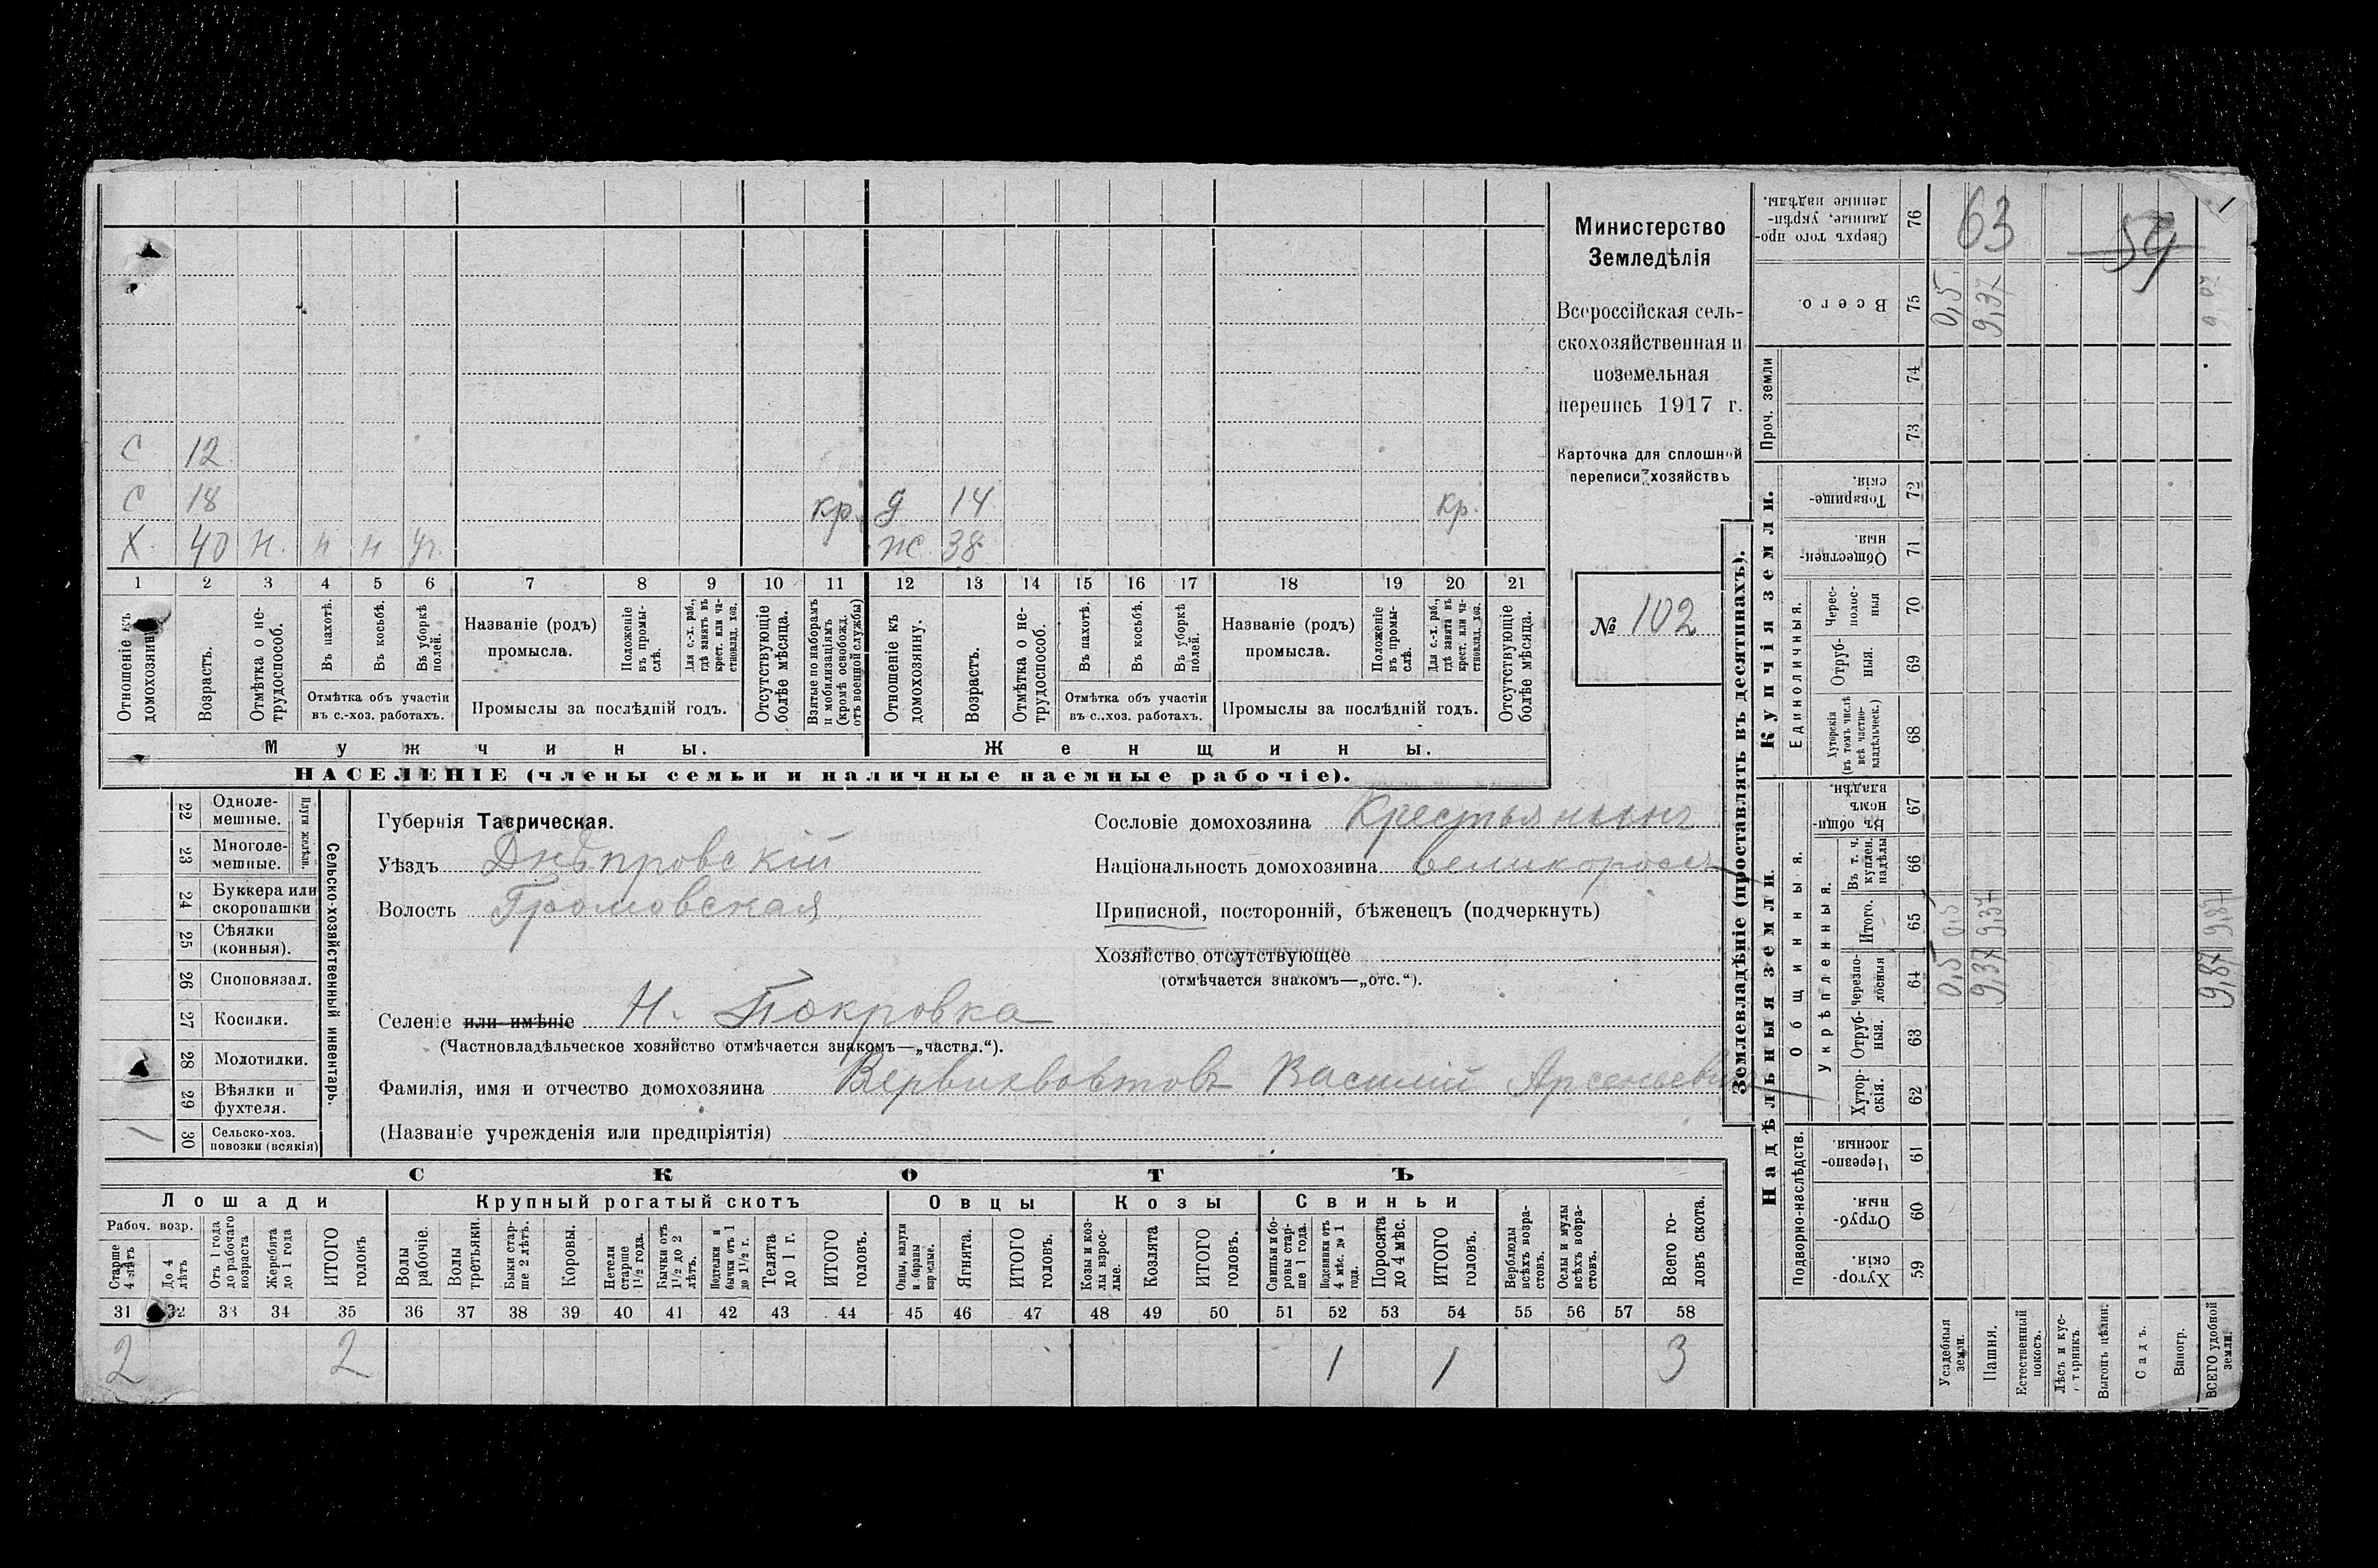 С 12
С 18 кр. д 14 кр.
Х. 40 н. н н уг. ж. 38
1 2 3 4 5 6 7 8 9 10 11 12 13 14 15 16 17 18 19 20 21
Отношеніе къ домохозяину.
Возрастъ.
Отмѣтка о нетрудоспособ.
Въ пахотѣ.
Въ косьбѣ.
Въ уборкѣ полей.
Отмѣтка объ участіи
въ с.-хоз. работахъ.
Названіе (родъ)
промысла.
Положеніе въ промыслѣ.
Для с.-х. раб., гдѣ занятъ въ крест. или частновлад. хоз.
Промыслы за послѣдній годъ.
Отсутствующіе болѣе мѣсяца.
Взятые по наборамъ и мобилизаціямъ (кромѣ освобожд. отъ военной службы)
Отношеніе къ домохозяину.
Возрастъ.
Отмѣтка о нетрудоспособ.
Въ пахотѣ.
Въ косьбѣ.
Въ уборкѣ полей.
Отмѣтка объ участіи
въ с.-хоз. работахъ.
Названіе (родъ)
промысла.
Положеніе въ промыслѣ.
Для с.-х. раб., гдѣ занята въ крест. или частновлад. хоз.
Промыслы за послѣдній годъ.
Отсутствующіе болѣе мѣсяца.
Мужчины.
Женщины.
НАСЕЛЕНІЕ (члены семьи и наличные наемные рабочіе).
Министерство
Земледѣлія
Всероссійская сель-
скохозяйственная и
поземельная
перепись 1917 г.
Карточка для сплошной
переписи хозяйствъ
№ 102
22 Одноле-
мешные.
23 Многоле-
мешные.
Плуги желѣзн.
24 Буккера или
скоропашки
25 Сѣялки
(конныя).
26 Сноповязал.
27 Косилки.
28 Молотилки.
29 Вѣялки и
фухтеля.
1 30 Сельско-хоз.
повозки (всякія)
Сельско-хозяйственный инвентарь.
Губернія Таврическая.
Уѣздъ Днѣпровскій
Волость Громовская
Сословіе домохозяина Крестьянинъ
Національность домохозяина великороссъ
Приписной, посторонній, бѣженецъ (подчеркнуть)
Хозяйство отсутствующее
(отмѣчается знакомъ—„отс.“).
Селеніе или имѣніе Н. Покровка
(Частновладѣльческое хозяйство отмѣчается знакомъ—„частвл.“).
Фамилія, имя и отчество домохозяина Василій Арсеньевич
(Названіе учрежденія или предпріятія)
СКОТЪ
Лошади
Крупный рогатый скотъ
Овцы
Козы
Свиньи
Рабоч. возр.
Старше 4 лѣтъ
До 4 лѣтъ
Отъ 1 года до рабочаго возраста
Жеребята до 1 года
ИТОГО головъ
Волы рабочіе.
Волы третьяки.
Быки старше 2 лѣтъ.
Коровы.
Нетели старше 1½ года.
Бычки отъ 1½ до 2 лѣтъ.
Подтелки и бычки отъ 1 до 1½ г.
Телята до 1 г.
ИТОГО головъ.
Овцы, валухи и бараны взрослые.
Ягнята.
ИТОГО головъ.
Козы и козлы взрослые.
Козлята
ИТОГО головъ.
Свиньи и боровы старше 1 года.
Подсвинки отъ 4 мѣс. до 1 года.
Поросята до 4 мѣс.
ИТОГО головъ.
Верблюды всѣхъ возрастовъ.
Ослы и мулы всѣхъ возрастовъ.
Всего головъ скота.
31 32 33 34 35 36 37 38 39 40 41 42 43 44 45 46 47 48 49 50 51 52 53 54 55 56 57 58
2 2 1 1 3
Землевладѣніе (проставлять въ десятинахъ).
Надѣльныя земли.
Купчія земли.
Проч. земли
Подворно-наслѣдств.
Общинныя.
Укрѣпленныя.
Единоличныя.
Сверхъ того проданные, укрѣпленные надѣлы. 76 63 59 1
Всего. 75 0,5 9,37
74
73
Товарищескія. 72
Общественныя. 71
Чересполосныя 70
Отрубныя. 69
Хуторскія (въ томъ числѣ всѣ частновладѣльческ.) 68
Въ общинномъ владѣн. 67
Въ т. ч. куплен. надѣлы 66
Итого. 65 0,5 9,37 9,87
Черезполосныя 64 0,5 9,37 9,87
Отрубныя. 63
Хуторскія. 62
Черезполосныя. 61
Отрубныя. 60
Хуторскія. 59
Усадебныя земли.
Пашня.
Естественный покосъ.
Лѣсъ и кустарникъ
Выгонъ цѣлин.
Садъ.
Виногр.
ВСЕГО удобной земли.